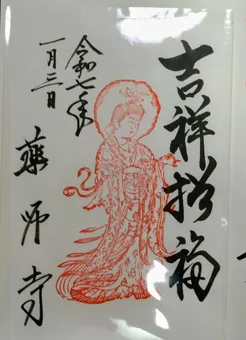 吉祥招福
令和七年
一月三日
薬師寺